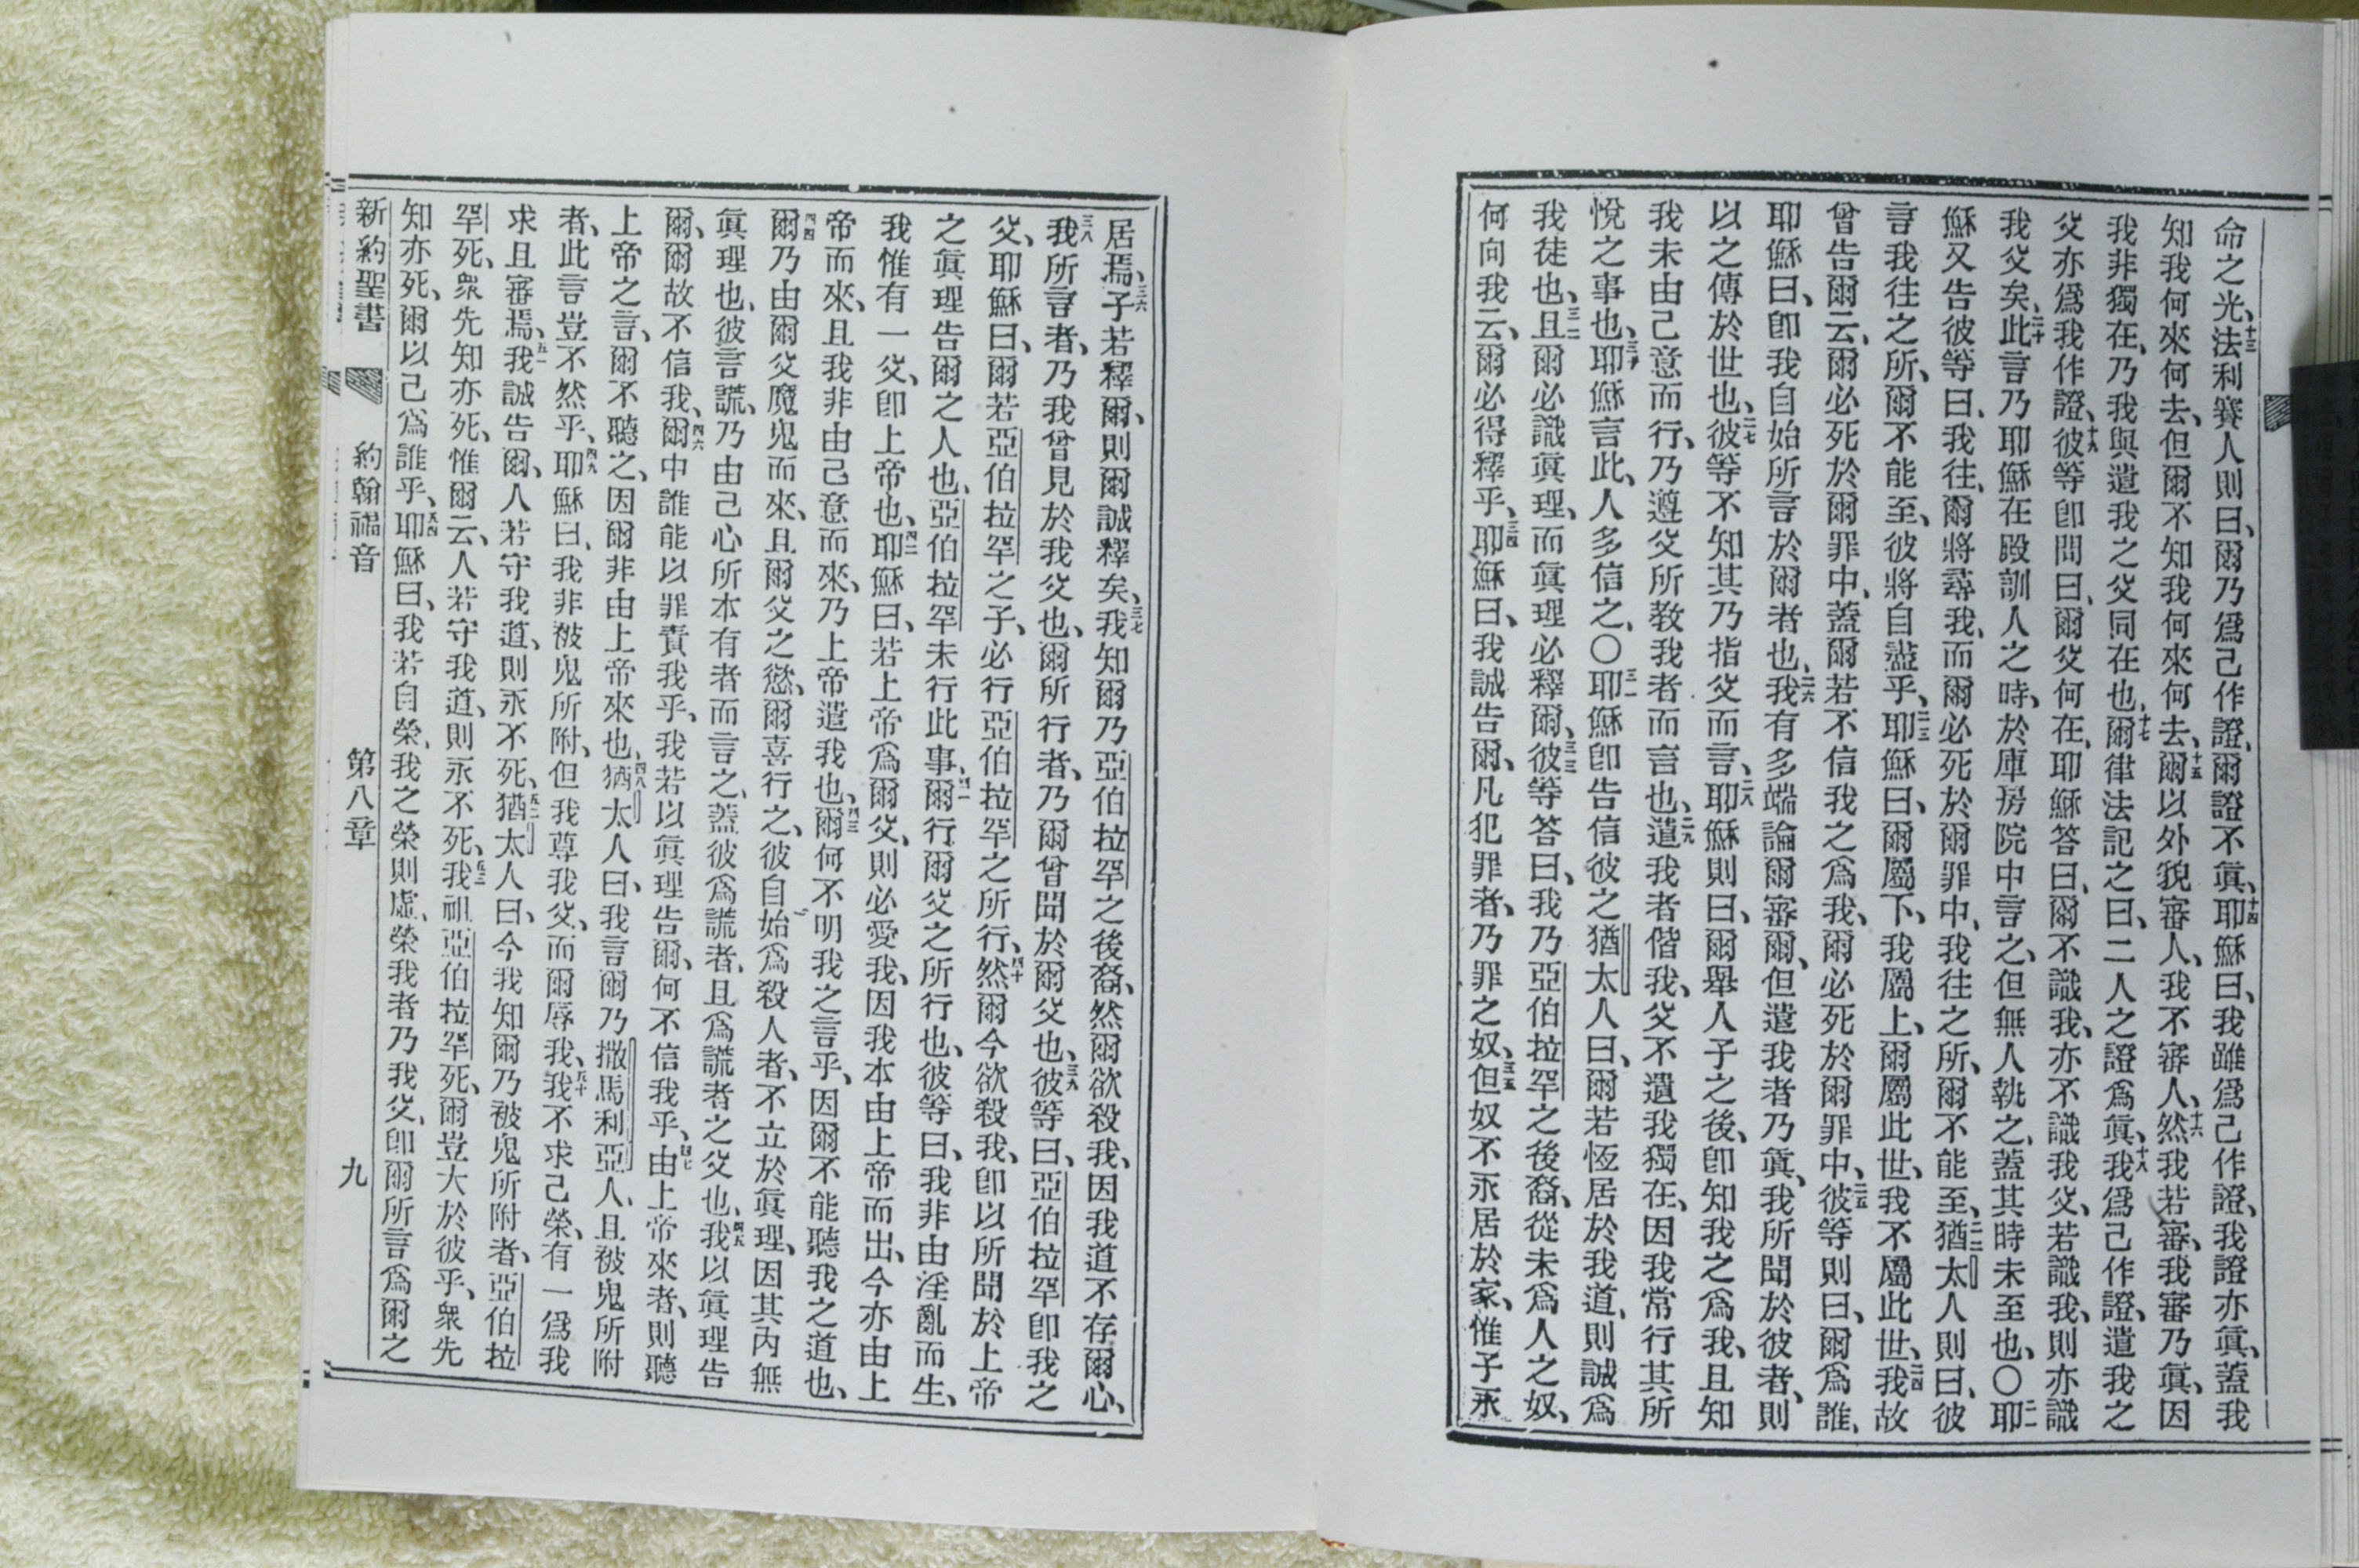 命之光、十三法利賽人則曰、爾乃爲己作證、爾證不眞、十四耶穌曰、我雖爲己作證、我證亦眞、蓋我
知我何來何去、但爾不知我何來何去、十五爾以外貌審人、我不審人、十六然我若審、我審乃眞、因
我非獨在、乃我與遣我之父同在也、十七爾律法記之曰、二人之證爲眞、十八我爲己作證、遣我之
父亦爲我作證、十九彼等卽問曰、爾父何在、耶穌答曰、爾不識我、亦不識我父、若識我、則亦識
我父矣、二十此言乃耶穌在殿訓人之時、於庫房院中言之、但無人執之、蓋其時未至也、〇二一耶
穌又告彼等曰、我往、爾將尋我、而爾必死於爾罪中、我往之所、爾不能至、二二猶太人則曰、彼
言我往之所、爾不能至、彼將自盡乎、二三耶穌曰、爾屬下、我屬上、爾屬此世、我不屬此世、二四我故
曾告爾云、爾必死於爾罪中、蓋爾若不信我之爲我、爾必死於爾罪中、二五彼等則曰、爾爲誰、
耶穌曰、卽我自始所言於爾者也、二六我有多端論爾審爾、但遣我者乃眞、我所聞於彼者、則
以之傳於世也、二七彼等不知其乃指父而言、二八耶穌則曰、爾舉人子之後、卽知我之爲我、且知
我未由己意而行、乃遵父所教我者而言也、二九遣我者偕我、父不遺我獨在、因我常行其所
悅之事也、三十耶穌言此、人多信之、〇三一耶穌卽告信彼之猶太人曰、爾若恆居於我道、則誠爲
我徒也、三二且爾必識眞理、而眞理必釋爾、三三彼等答曰、我乃亞伯拉罕之後裔、從未爲人之奴、
何向我云、爾必得釋乎、三四耶穌曰、我誠告爾、凡犯罪者、乃罪之奴、三五但奴不永居於家、惟子永
居焉、三六子若釋爾、則爾誠釋矣、三七我知爾乃亞伯拉罕之後裔、然爾欲殺我、因我道不存爾心、
三八我所言者、乃我曾見於我父也、爾所行者、乃爾曾聞於爾父也、三九彼等曰、亞伯拉罕卽我之
父、耶穌曰、爾若亞伯拉罕之子、必行亞伯拉罕之所行、四十然爾今欲殺我、卽以所聞於上帝
之眞理告爾之人也、亞伯拉罕未行此事、四一爾行爾父之所行也、彼等曰、我非由淫亂而生、
我惟有一父、卽上帝也、四二耶穌曰、若上帝爲爾父、則必愛我、因我本由上帝而出、今亦由上
帝而來、且我非由己意而來、乃上帝遣我也、四三爾何不明我之言乎、因爾不能聽我之道也、
四四爾乃由爾父魔鬼而來、且爾父之慾、爾喜行之、彼自始爲殺人者、不立於眞理、因其內無
眞理也、彼言謊、乃由己心所本有者而言之、蓋彼爲謊者、且爲謊者之父也、四五我以眞理告
爾、爾故不信我、四六爾中誰能以罪責我乎、我若以眞理告爾、何不信我乎、四七由上帝來者、則聽
上帝之言、爾不聽之、因爾非由上帝來也、四八猶太人曰、我言爾乃撒馬利亞人、且被鬼所附
者、此言豈不然乎、四九耶穌曰、我非被鬼所附、但我尊我父、而爾辱我、五十我不求己榮、有一爲我
求且審焉、五一我誠告爾、人若守我道、則永不死、五二猶太人曰、今我知爾乃被鬼所附者、亞伯拉
罕死、衆先知亦死、惟爾云、人若守我道、則永不死、五三我祖亞伯拉罕死、爾豈大於彼乎、衆先
知亦死、爾以己爲誰乎、五四耶穌曰、我若自榮、我之榮則虛、榮我者乃我父、卽爾所言爲爾之
新約聖書 約翰福音 第八章 九